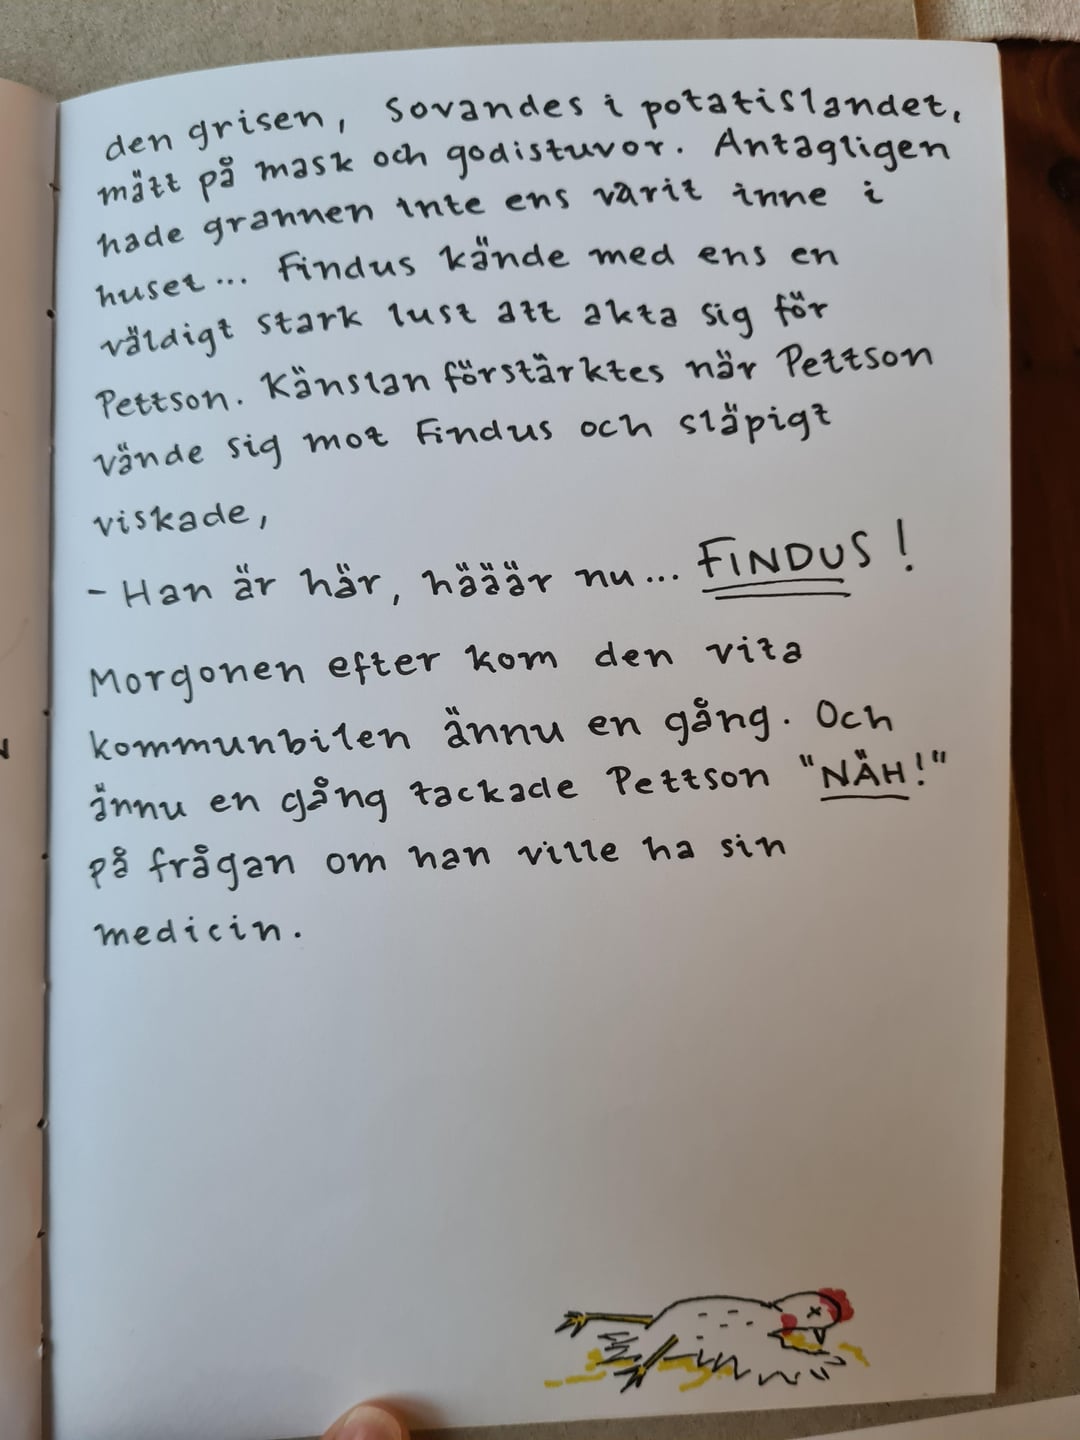 den grisen, sovandes i potatislandet,
mätt på mask och godistuvor. Antagligen
hade grannen inte ens varit inne i
huset... Findus kände med ens en
väldigt stark lust att akta sig för
Pettson. Känslan förstärktes när Pettson
vände sig mot Findus och släpigt
viskade,
- Han är här, hääär nu... FINDUS!
Morgonen efter kom den vita
kommunbilen ännu en gång. Och
ännu en gång tackade Pettson "NÄH!"
på frågan om han ville ha sin
medicin.